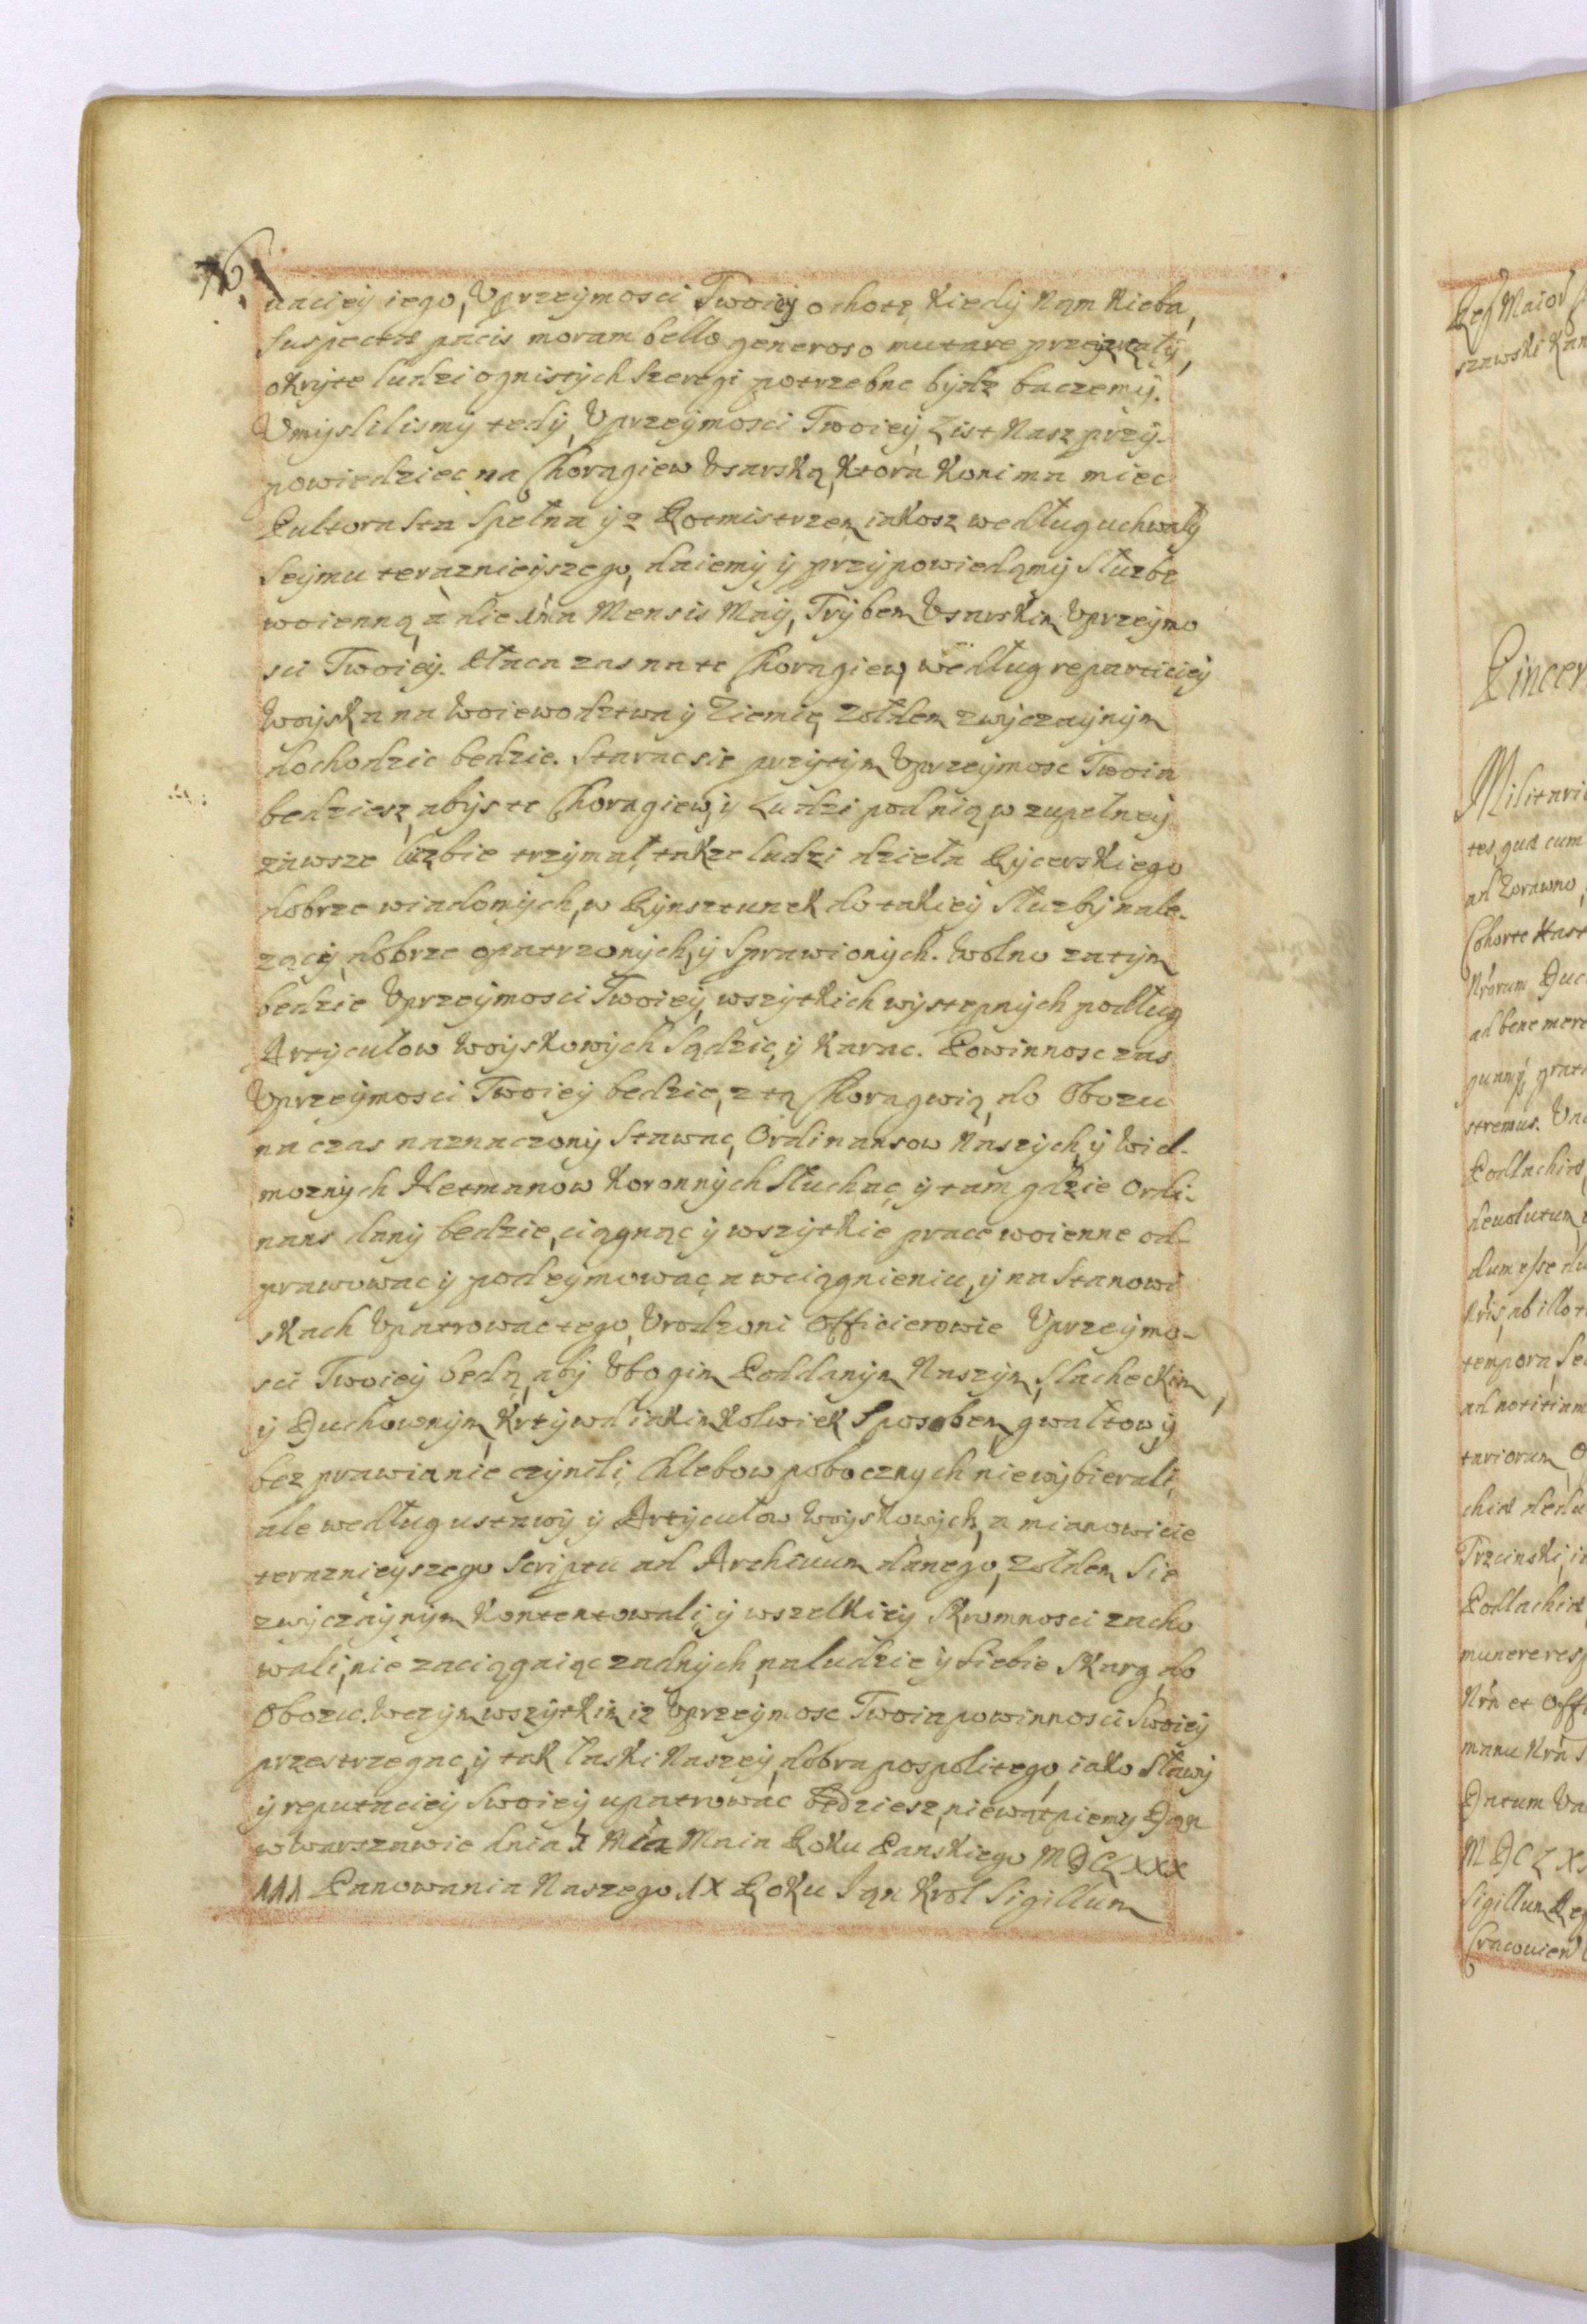 76.
unciey iego, Vprzeymosci Twoiey ochotę, kiedy Nąm Nieba,
Suspectas pacis moram bello generoso mutare przeyrzały,
okryte ludzi ognistych Szeregi potrzebne bydz baczemy.
Vmyslilismy tedy, Vprzeymosci Twoiey, List Nasz przy-
powiedziec na Chorągiew Vsarską, Ktora Koni ma miec
Pultora Sta Spełna y z Rotmistrzem, iakosz według uchwały
Seymu teraznieyszego, daiemy y przypowiedąmy Służbe
woienną, à die 1ma Mensis Maÿ, Trybem Vsarskim Vprzeymo
sci Twoiey. Płaca zas na te Chorągiew, według reparticiey
Woyska na Woiewodztwa y Ziemię, żołdem zwyczaynym
dochodzic bedzie. Starac sie przytym Vprzeymosc Twoia
bedziesz, abys te Chorągiew, y Ludzi pod nią, w zupełney
zawsze liczbie trzymał, także ludzi dzieła Rycerskiego
dobrze wiadomych, w Rynsztunek do takiey Służby nale-
zący, dobrze opatrzonych, y Sprawionych. Wolno zatym
bedzie Vprzeymosci Twoiey, wszytkich wystepnych podług
Artyculow Woyskowych Sądzic, y Karac. Powinnosc zas
Vprzeymosci Twoiey bedzie, z tą Chorągwią, do Obozu
na czas naznaczony Stawac, Ordinansow Naszych, y Wiel-
moznych Hetmanow Koronnych Słuchac, y tam gdzie Ordi-
nans dany bedzie, ciągnąc y wszytkie prace woienne od-
prawowac y podeymowac, a w ciągnieniu, y na Stanowi
skach Vpatrowac tego, Vrodzoni Officierowie Vprzeymo-
sci Twoiey bedą, aby Vbogim Poddanym Naszym, Slacheckim,
y Duchownym, Krzywd iakimkolwiek Sposobem, gwałtow, y
bezprawia nie czynili, Chlebow pobocznych nie wybierali,
ale według ustawy y Artyculow Woyskowych, a mianowicie
teraznieyszego Scriptu ad Archivum danego, żołdem Sie
zwyczaynym Kontentowali, y wszelkiey Skromnosci zacho
wali, nie zaciągaiąc zadnych, na ludzie y Siebie Skarg, do
Obozu. W czym wszytkim iz Vprzeymosc Twoia powinnosci Swoiey
przestrzegac, y tak łaski Naszey, dobra pospolitego, iako Sławy
y reputaciey Swoiey, upatrowac bedziesz, niewątpiemy Dąn
w Warszawie dnia I Mca Maia Roku Panskiego MDCLXXX
III Panowania Naszego IX Roku Ian Krol Sigillum